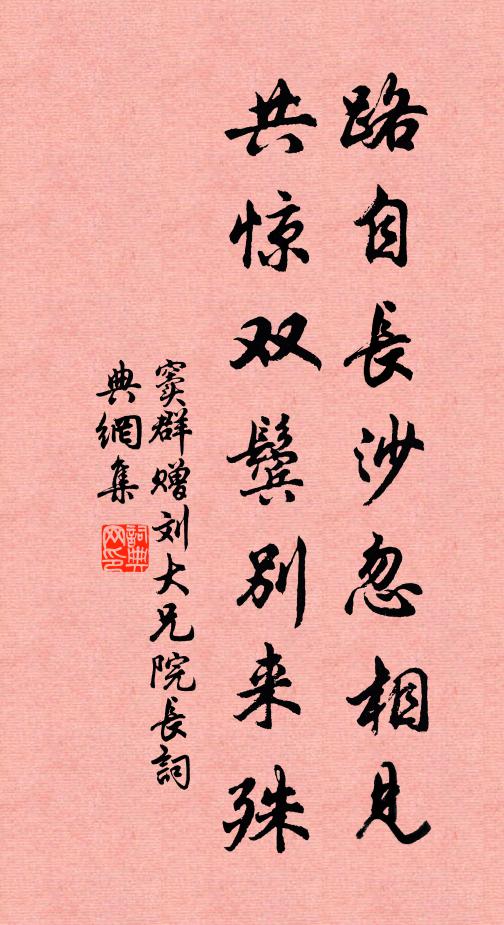 路自長沙忽相見
共惊双鬓别来殊
窦群赠刘大兄院長詞
典網集
詞典
网印